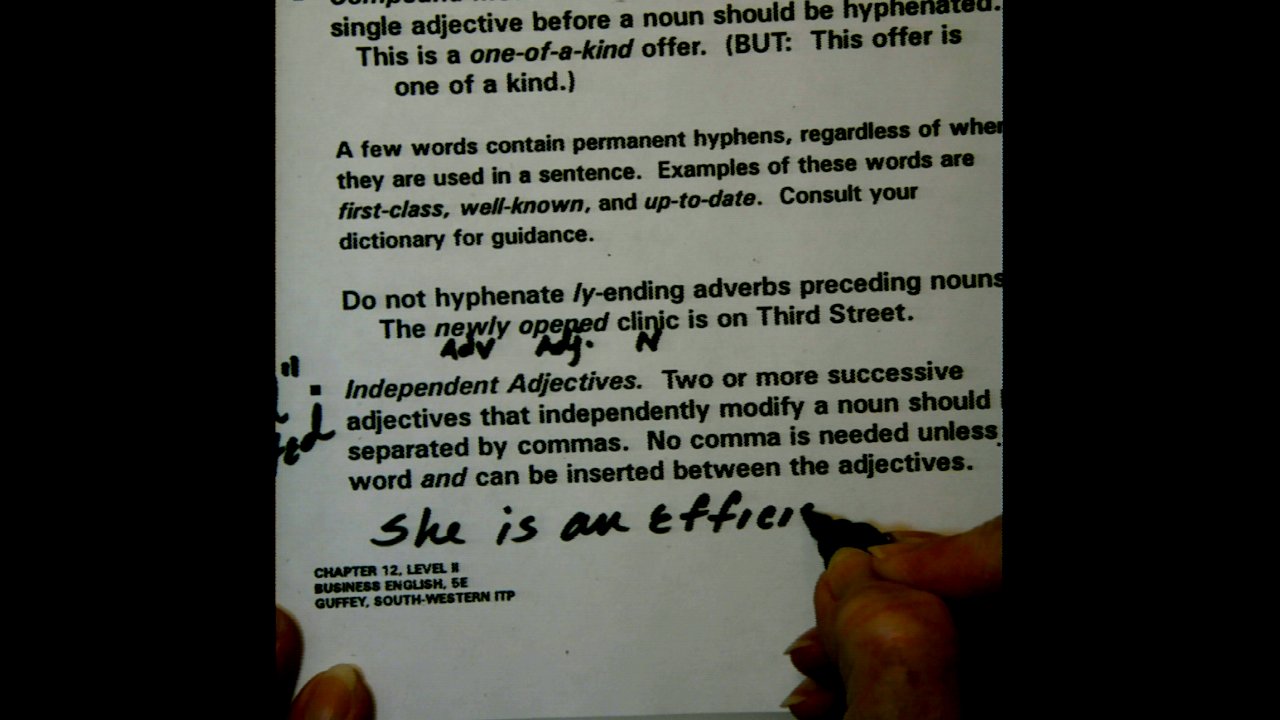 single adjective before a noun should be hyphenated.
This is a one-of-a-kind offer. (BUT: This offer is
one of a kind.)
A few words contain permanent hyphens, regardless of wher
they are used in a sentence. Examples of these words are
first-class, well-known, and up-to-date. Consult your
dictionary for guidance.
Do not hyphenate ly-ending adverbs preceding nouns
The newly opened clinic is on Third Street.
Adv Adj. N
Independent Adjectives. Two or more successive
adjectives that independently modify a noun should
separated by commas. No comma is needed unless
word and can be inserted between the adjectives.
She is an Efficie
CHAPTER 12, LEVEL II
BUSINESS ENGLISH, 5E
GUFFEY, SOUTH-WESTERN ITP